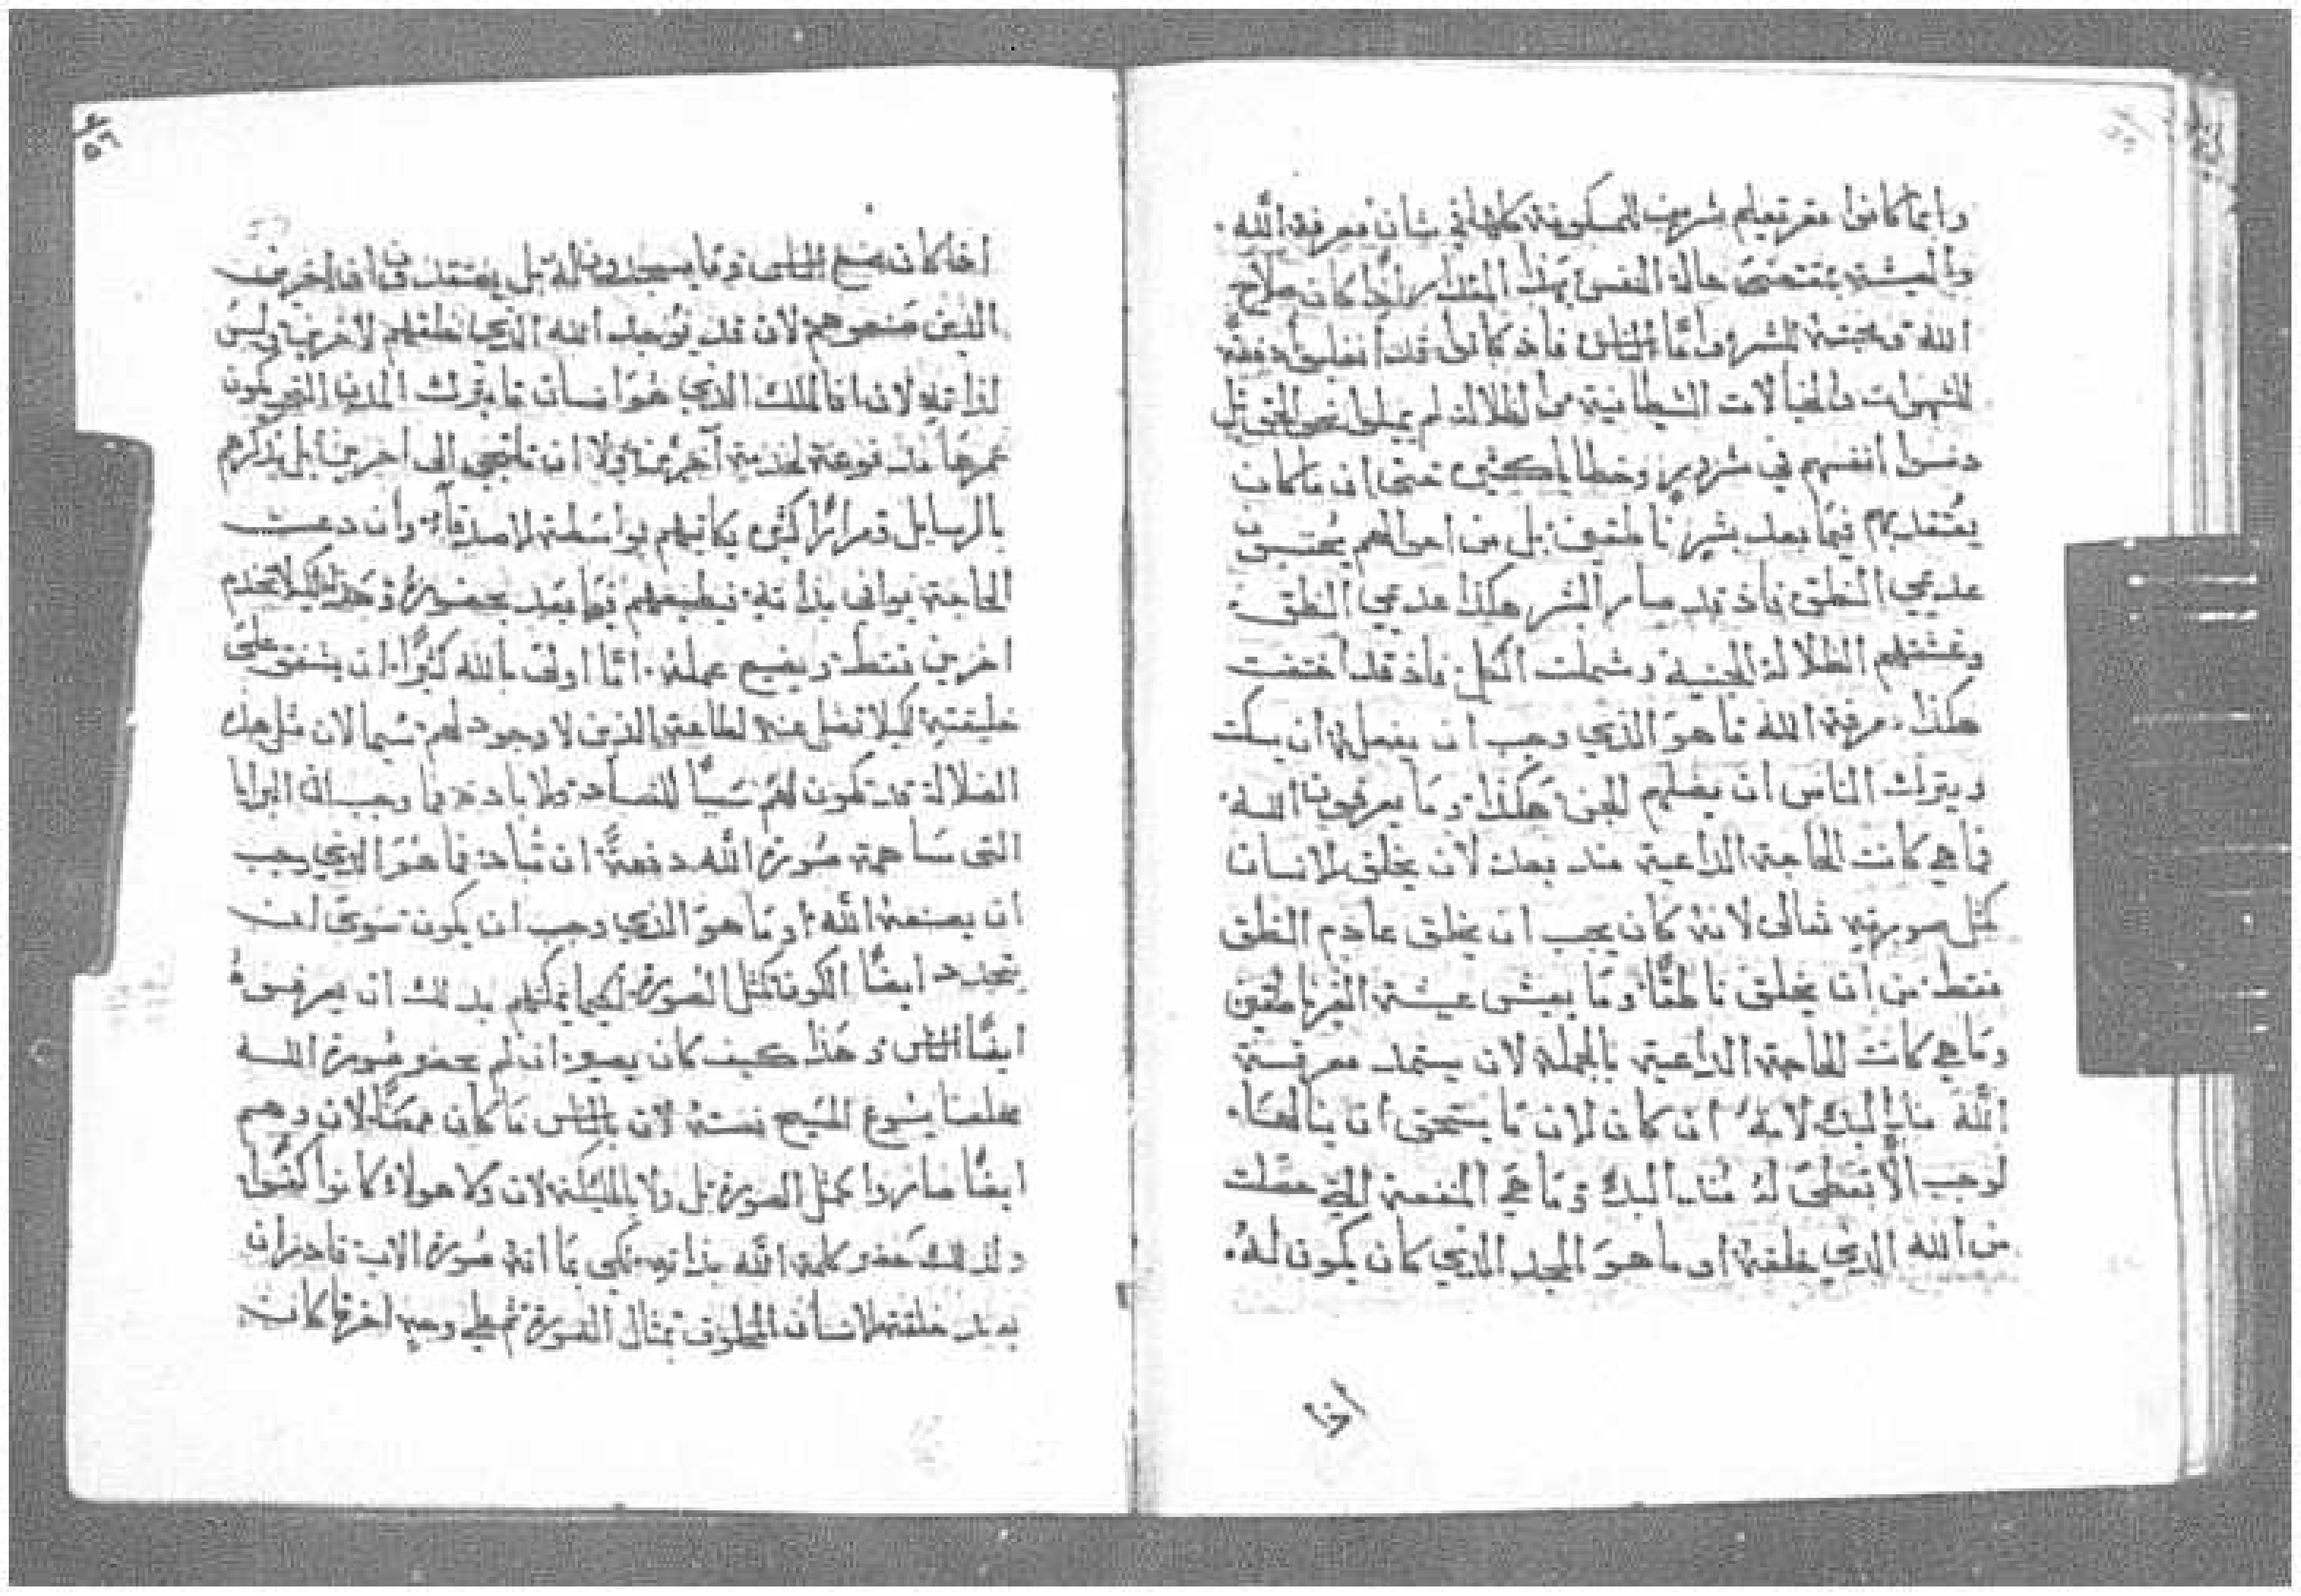 وانما كانوا مقر تعليم شريف للمسكونة كلها في شان معرفة الله.
والعيشة بمقتضى حالة النفس بهذا المقدار اذا كان صلاح
الله ومحبته للبشر واما الناس فاذ كانوا قد انغلبوا دفعة
للشهوات والخيالات الشيطانية من الضلالة لم يميلوا نحو الحق بل
دنسوا انفسهم في شرور وخطايا كثيرة حتى ان ما كان
يعتقد بهم فيما بعد بشرًا ناطقين بل من احوالهم يحتسبون
عديمي النطق فاذ قد صار البشر هكذا عديمي النطق.
وغشتهم الضلالة الجنية وشملت الكل فاذ قد اختفت
هكذا معرفة الله ما هو الذي وجب ان يفعل لله ان يسكت
ويترك الناس ان يضلهم الجن هكذا وما يعرفون الله.
فما هي كانت الحاجة الداعية منذ بعد لان يخلق الانسان
كمثل صورته تعالى لانه كان يجب ان يخلق عادم النطق
فقط من ان يخلق ناطقًا وما يعيش عيشة الغير ناطقين
وما هي كانت الحاجة الداعية بالجملة لان يستمد معرفة
الله منذ البدء لانه ان كان الان ما يستحق ان ينالها.
لوجب الا تعطى له منذ البدء وما هي المنفعة التي حصلت
من الله الذي خلقه او ما هو المجد الذي كان يكون له.
اذا
٥٦
اذا كان صنع الناس وما يسجدون له بل يعتقدون ان اخرين
الذين صنعوهم لان قد يوجد الله الذي خلقهم لاخرين وليس
لذاته لان الملك الذي هو انسان ما يترك المدن التي يكون
عمرها مدفوعة لخدمة آخرين ولا ان تلتجي الى اخرين بل يذكرهم
بالرسايل ومرارًا كثيرة يكاتبهم بواسطة الاصدقاء وان دعت
الحاجة يوافى بذاته فيطيعهم فيما بعد بحضوره وهذا لكيلا تخدم
اخرين فقط ويضيع عمله. اما اولى بالله كثيرًا ان يشفق على
خليقته لكيلا تضل عنه لطاعة الذين لا وجود لهم سيما لان مثل هذه
الضلالة قد تكون لهم سببًا للفساد والابادة وما وجب ان البرايا
التي ساهمت صورة الله دفعة ان تباد فما هو الذي وجب
ان يصنعه الله او ما هو الذي وجب ان يكون سوى ان
يتجدد ايضًا الكون كمثل الصورة لكيما يمكنهم بذلك ان يعرفوه
ايضًا الناس وهذا كيف كان يصير ان لم تحضر صورة الله
مخلصنا يسوع المسيح نفسه لان بالناس ما كان ممكنًا لان وهم
ايضًا صاروا كمثل الصورة بل ولا بالملايكة لان ولا هولاء كانوا كمثلها
ولذلك حضر كلمة الله بذاته لكي بما انه صورة الاب قادر ان
يعيد خلقة الانسان المخلوق بمثال الصورة ثم على وجه اخر ما كانت